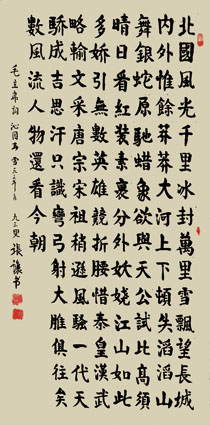 北國風光千里冰封萬里雪飄望長城
內外惟餘莽莽大河上下頓失滔滔山
舞銀蛇原馳蜡象欲與天公試比高須
晴日看紅裝素裹分外妖嬈江山如此
多嬌引無數英雄競折腰惜秦皇漢武
略輸文采唐宗宋祖稍遜風騷一代天
驕成吉思汗只識彎弓射大雕俱往矣
數風流人物還看今朝
毛主席詞沁園春雪 九三叟 張讓书